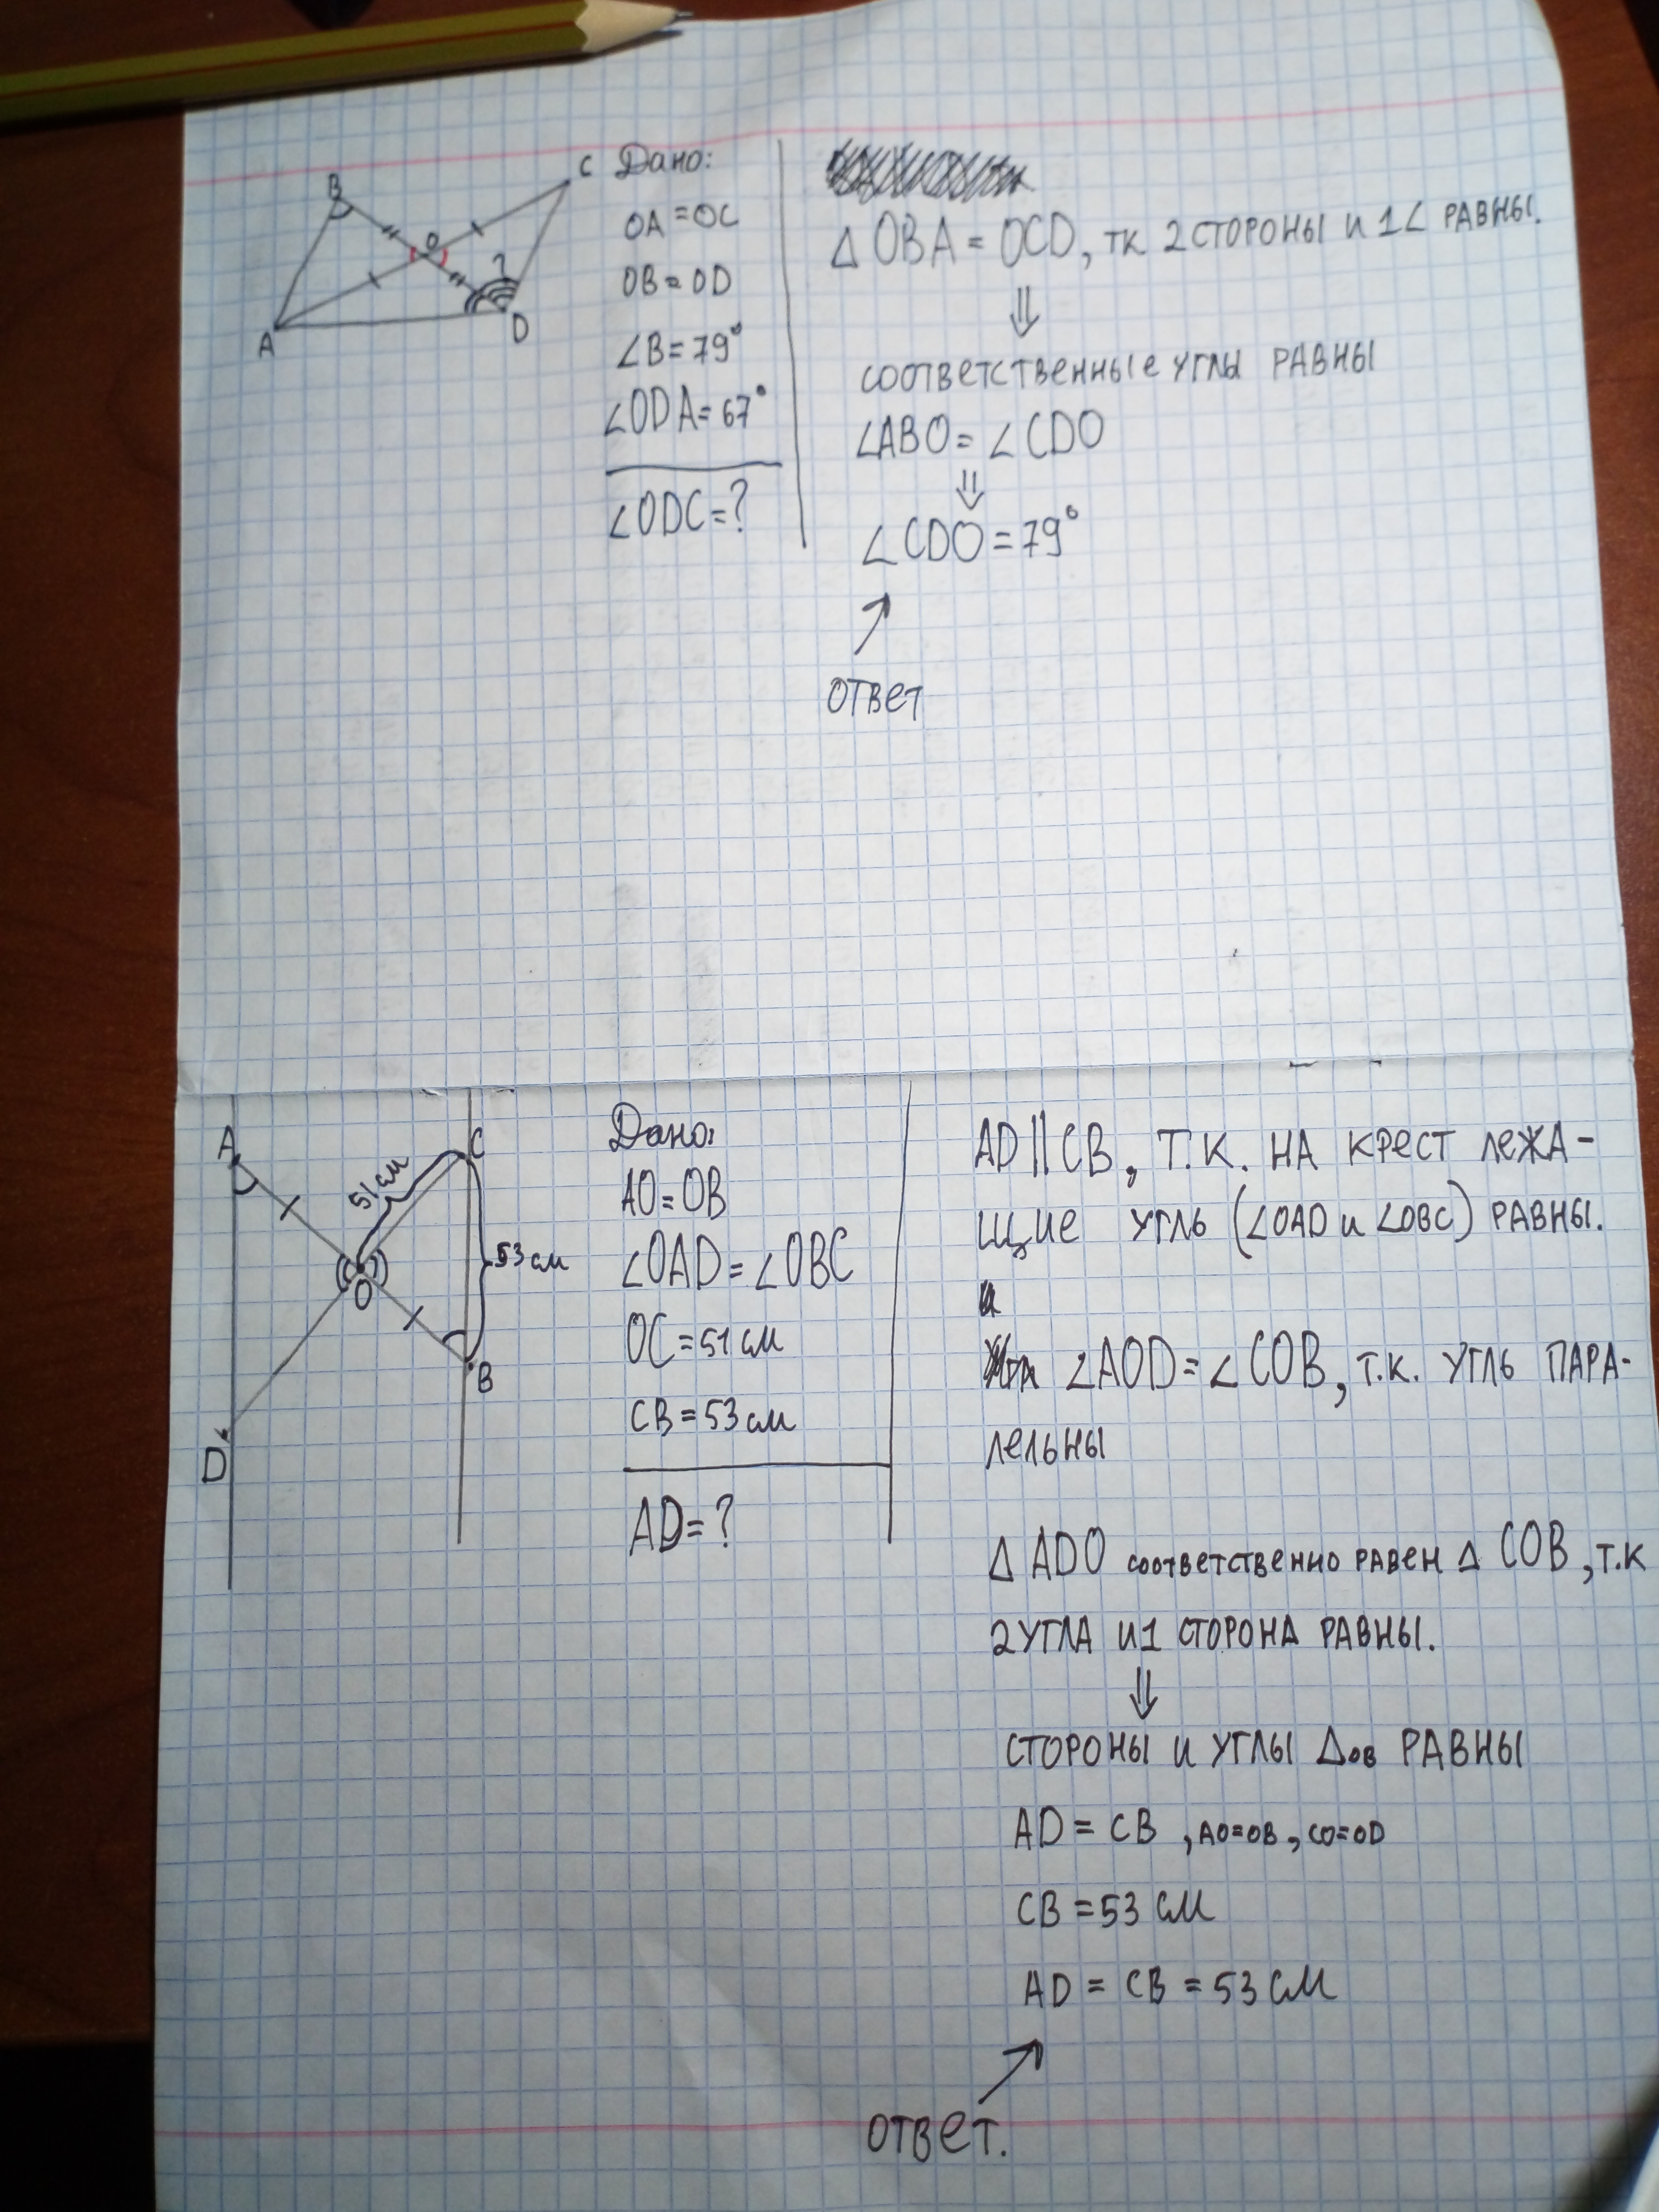 B
C
O
?
A
D
Дано:
OA = OC
OB = OD
∠B = 79°
∠ODA = 67°
∠ODC = ?
Δ OBA = OCD, тк 2 СТОРОНЫ и 1∠ РАВНЫ.
⇓
соответственные углы РАВНЫ
∠ABO = ∠CDO
⇓
∠CDO = 79°
ответ
A
C
51 см
53 см
O
B
D
Дано:
AO = OB
∠OAD = ∠OBC
OC = 51 см
CB = 53 см
AD = ?
AD || CB, Т.К. НА КРЕСТ ЛЕЖА-
ЩИЕ УГЛЬ (∠OAD и ∠OBC) РАВНЫ.
и
∠AOD = ∠COB, т.к. УГЛЬ ПАРА-
ЛЕЛЬНЫ
Δ ADO соответственно равен Δ COB, т.к
2 УГЛА и 1 СТОРОНА РАВНЫ.
⇓
СТОРОНЫ и УГЛЫ Δов РАВНЫ
AD = CB, AO=OB, CO=OD
CB = 53 см
AD = CB = 53 см
ответ.